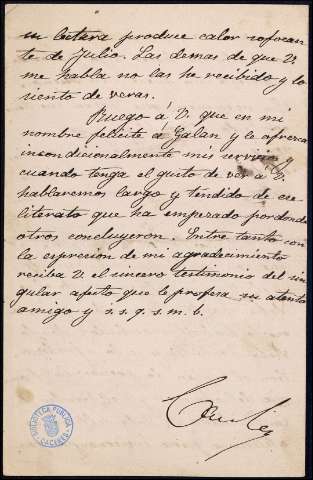 su lectura produce calor sofocan-
te de Julio. Las demas de que V.
me habla no las he recibido y lo
siento de veras.
Ruego á V. que en mi
nombre felicite á Galan y le ofrezca
incondicionalmente mis servicios
cuando tenga el gusto de ver á V.
hablaremos largo y tendido de ese
literato que ha empezado por donde
otros concluyeron. Entre tanto con
la expresion de mi agradecimiento
reciba V. el sincero testimonio del sin-
gular afecto que le profesa su atento
amigo y s. s. q. s. m. b.
BIBLIOTECA PUBLICA
CACERES